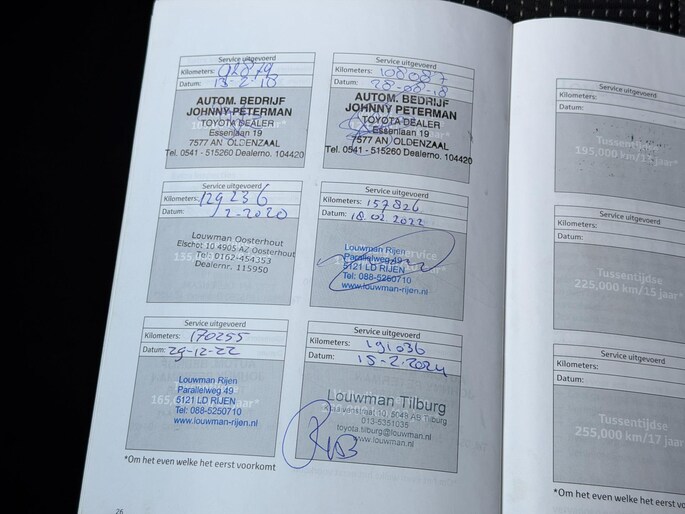 Service uitgevoerd
Kilometers: 92879
Datum: 13-2-18
AUTOM. BEDRIJF
JOHNNY PETERMAN
TOYOTA DEALER
Essenlaan 19
7577 AN OLDENZAAL
Tel. 0541 - 515260 Dealerno. 104420
Service uitgevoerd
Kilometers: 108087
Datum: 28-08-18
AUTOM. BEDRIJF
JOHNNY PETERMAN
TOYOTA DEALER
Essenlaan 19
7577 AN OLDENZAAL
Tel. 0541 - 515260 Dealerno. 104420
Service uitgevoerd
Kilometers: 129236
Datum: 2-2020
Louwman Oosterhout
Elschot 10 4905 AZ Oosterhout
Tel: 0162-454353
Dealernr. 115950
Service uitgevoerd
Kilometers: 157826
Datum: 18 02 2022
Louwman Rijen
Parallelweg 49
5121 LD RIJEN
Tel: 088-5250710
www.louwman-rijen.nl
Service uitgevoerd
Kilometers: 170255
Datum: 29-12-22
Louwman Rijen
Parallelweg 49
5121 LD RIJEN
Tel: 088-5250710
www.louwman-rijen.nl
Service uitgevoerd
Kilometers: 191036
Datum: 15-2-2024
Louwman Tilburg
5049 AB Tilburg
013-5351035
toyota.tilburg@louwman.nl
www.louwman.nl
*Om het even welke het eerst voorkomt
26
Service uitgevoerd
Kilometers:
Datum:
Tussentijdse
195,000 km/13 jaar*
Service uitgevoerd
Kilometers:
Datum:
Tussentijdse
225,000 km/15 jaar*
Service uitgevoerd
Kilometers:
Datum:
Tussentijdse
255,000 km/17 jaar
*Om het even welke het eerst